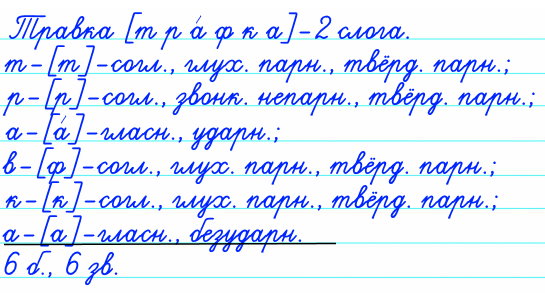 Травка [т р а́ ф к а]-2 слога.
т-[т]-согл., глух. парн., твёрд. парн.;
р-[р]-согл., звонк. непарн., твёрд. парн.;
а-[а́]-гласн., ударн.;
в-[ф]-согл., глух. парн., твёрд. парн.;
к-[к]-согл., глух. парн., твёрд. парн.;
а-[а]-гласн., безударн.
6 б., 6 зв.